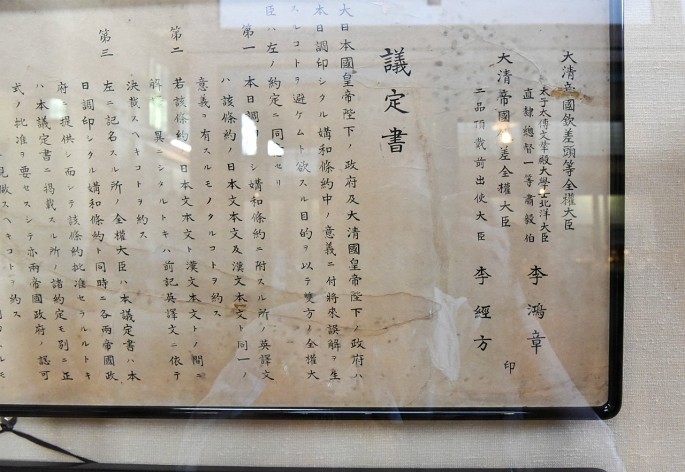 大清帝國欽差頭等全權大臣
太子太傅文華殿大學士北洋大臣
直隸總督一等肅毅伯 李鴻章
大清帝國欽差全權大臣
二品頂戴前出使大臣 李經方 印
議定書
大日本國皇帝陛下ノ政府及大清國皇帝陛下ノ政府ハ
本日調印シタル媾和條約中ノ意義ニ付將來誤解ヲ生
スルコトヲ避ケムト欲スル目的ヲ以テ雙方ノ全權大
臣ハ左ノ約定ニ同意セリ
第一 本日調印シタル媾和條約ニ附スル所ノ英譯文
ハ該條約ノ日本文本文及漢文本文ト同一ノ
意義ヲ有スルモノタルコトヲ約ス
第二 若該條約ノ日本文本文ト漢文本文トノ間ニ
解 異ニシタルトキハ前記英譯文ニ依テ
決裁スヘキコトヲ約ス
第三 左ニ記名スル所ノ全權大臣ハ本議定書ハ本
日調印シタル媾和條約ト同時ニ各兩帝國政
府ニ提供シ而シテ該條約批准セラルルトキ
ハ本議定書ニ掲載スル所ノ諸約定モ別ニ正
式ノ批准ヲ要セスシテ亦兩帝國政府ノ認可
見做スヘキコトヲ約ス